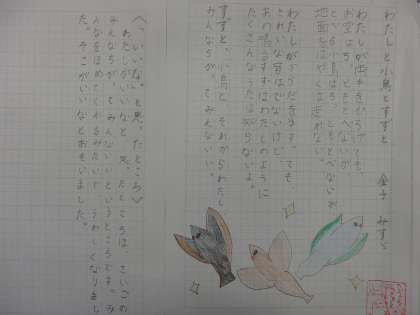 わたしと小鳥とすずと　金子　みすゞ
わたしが両手をひろげても、
お空はちっともとべないが
とべる小鳥はわたしのように、
地面をはやくは走れない。
わたしがからだをゆすっても
きれいな音はでないけど、
あの鳴るすずはわたしのように
たくさんなうたは知らないよ。
すずと、小鳥と、それからわたし
みんなちがって、みんないい。
〈「いいな」と思ったところ〉
わたしがいいなと思ったところは、さいごの
みんなちがって、みんないいというところです。み
んなをほめてくれるみたいで、うれしくなりまし
た。そこがいいなとおもいました。